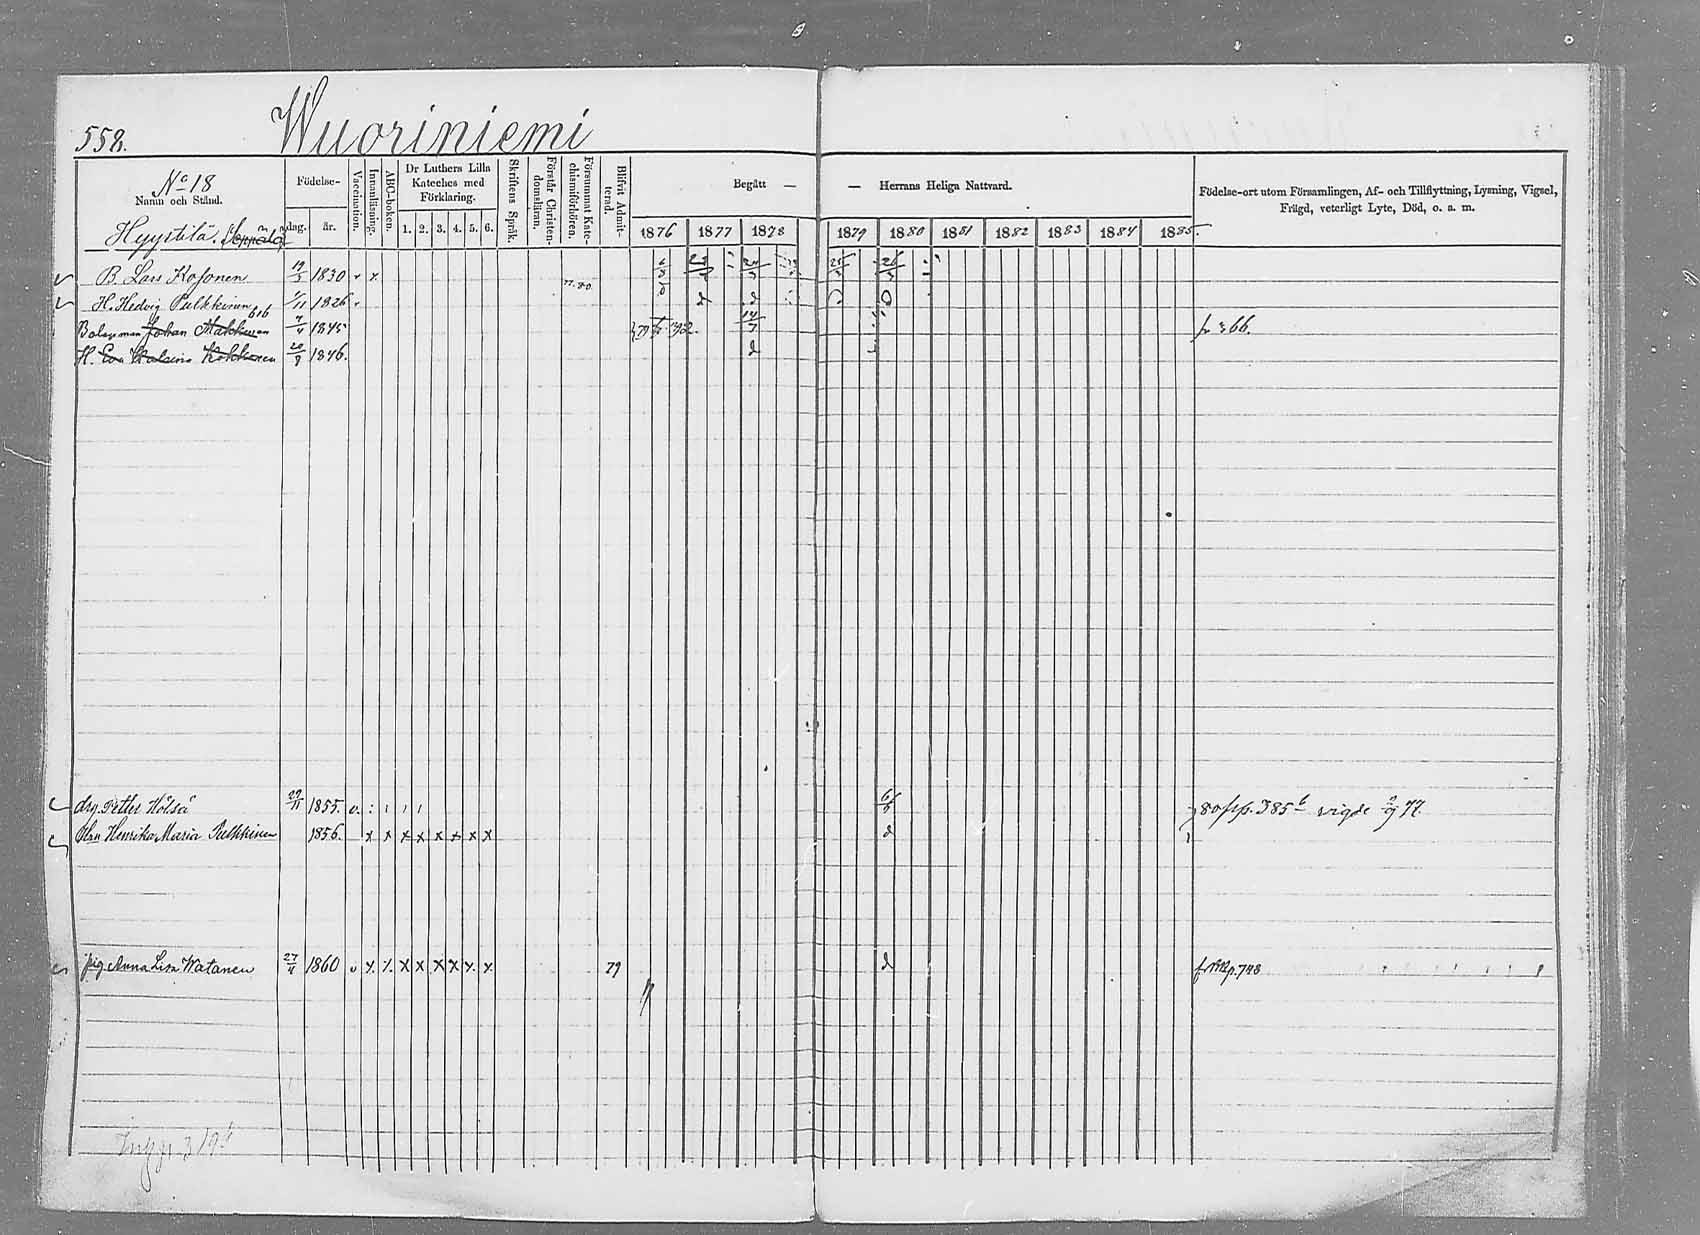 558.
Wuoriniemi
No 18
Namn och Stånd.
Hyystilä. Seppälä
Födelse-
dag.
år.
Vaccination.
Innanläsning.
ABC-boken.
Dr Luthers Lilla Kateches med Förklaring.
1. 2. 3. 4. 5. 6.
Skriftens Språk.
Förstår Christendomsläran.
Försummat Katechismiförhören.
Blifvit Admitterad.
Begått —
— Herrans Heliga Nattvard.
1876 1877 1878 1879 1880 1881 1882 1883 1884 1885
Födelse-ort utom Församlingen, Af- och Tillflyttning, Lysning, Vigsel,
Frägd, veterligt Lyte, Död, o. a. m.
B. Lars Kosonen 19/5 1830 v x 77. 80.
H. Hedvig Pulkkinen 1/11 1826 v
616
Bolagsman Johan Makkonen 7/4 1845 14/7 fr 366.
H. Eva Kokkonen 20/8 1846.
drg. Petter Hölsä 29/11 1855. v. 6/5 80 frp. 385 b vigde 9/9 77.
Hu Henrika Maria Pulkkinen 1856. x x x x x x x x d
pig Anna Lisa Watanen 27/4 1860 v x x x x x x x x 79 d p. 748